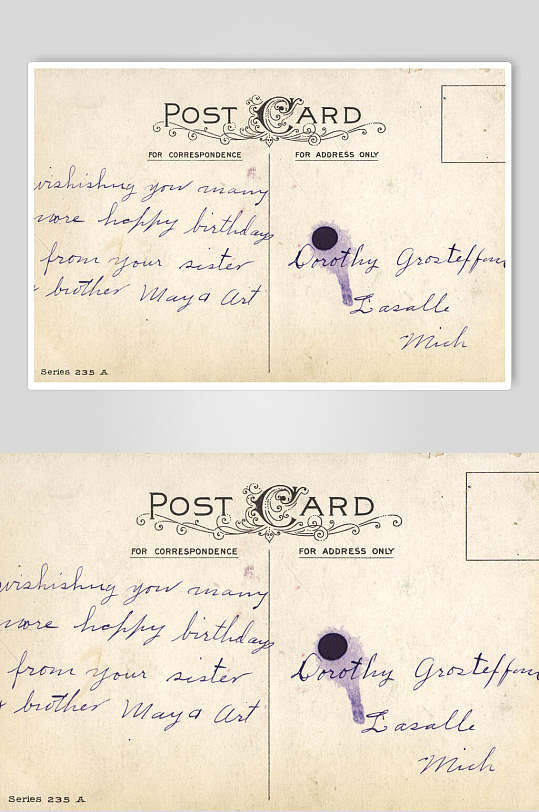 POST CARD
FOR CORRESPONDENCE
FOR ADDRESS ONLY
wishishng you many
more happy birthdays
from your sister
& brother May & Art
Dorothy Grosteffon
Lasalle
Mich
Series 235 A
POST CARD
FOR CORRESPONDENCE
FOR ADDRESS ONLY
wishishng you many
more happy birthdays
from your sister
& brother May & Art
Dorothy Grosteffon
Lasalle
Mich
Series 235 A